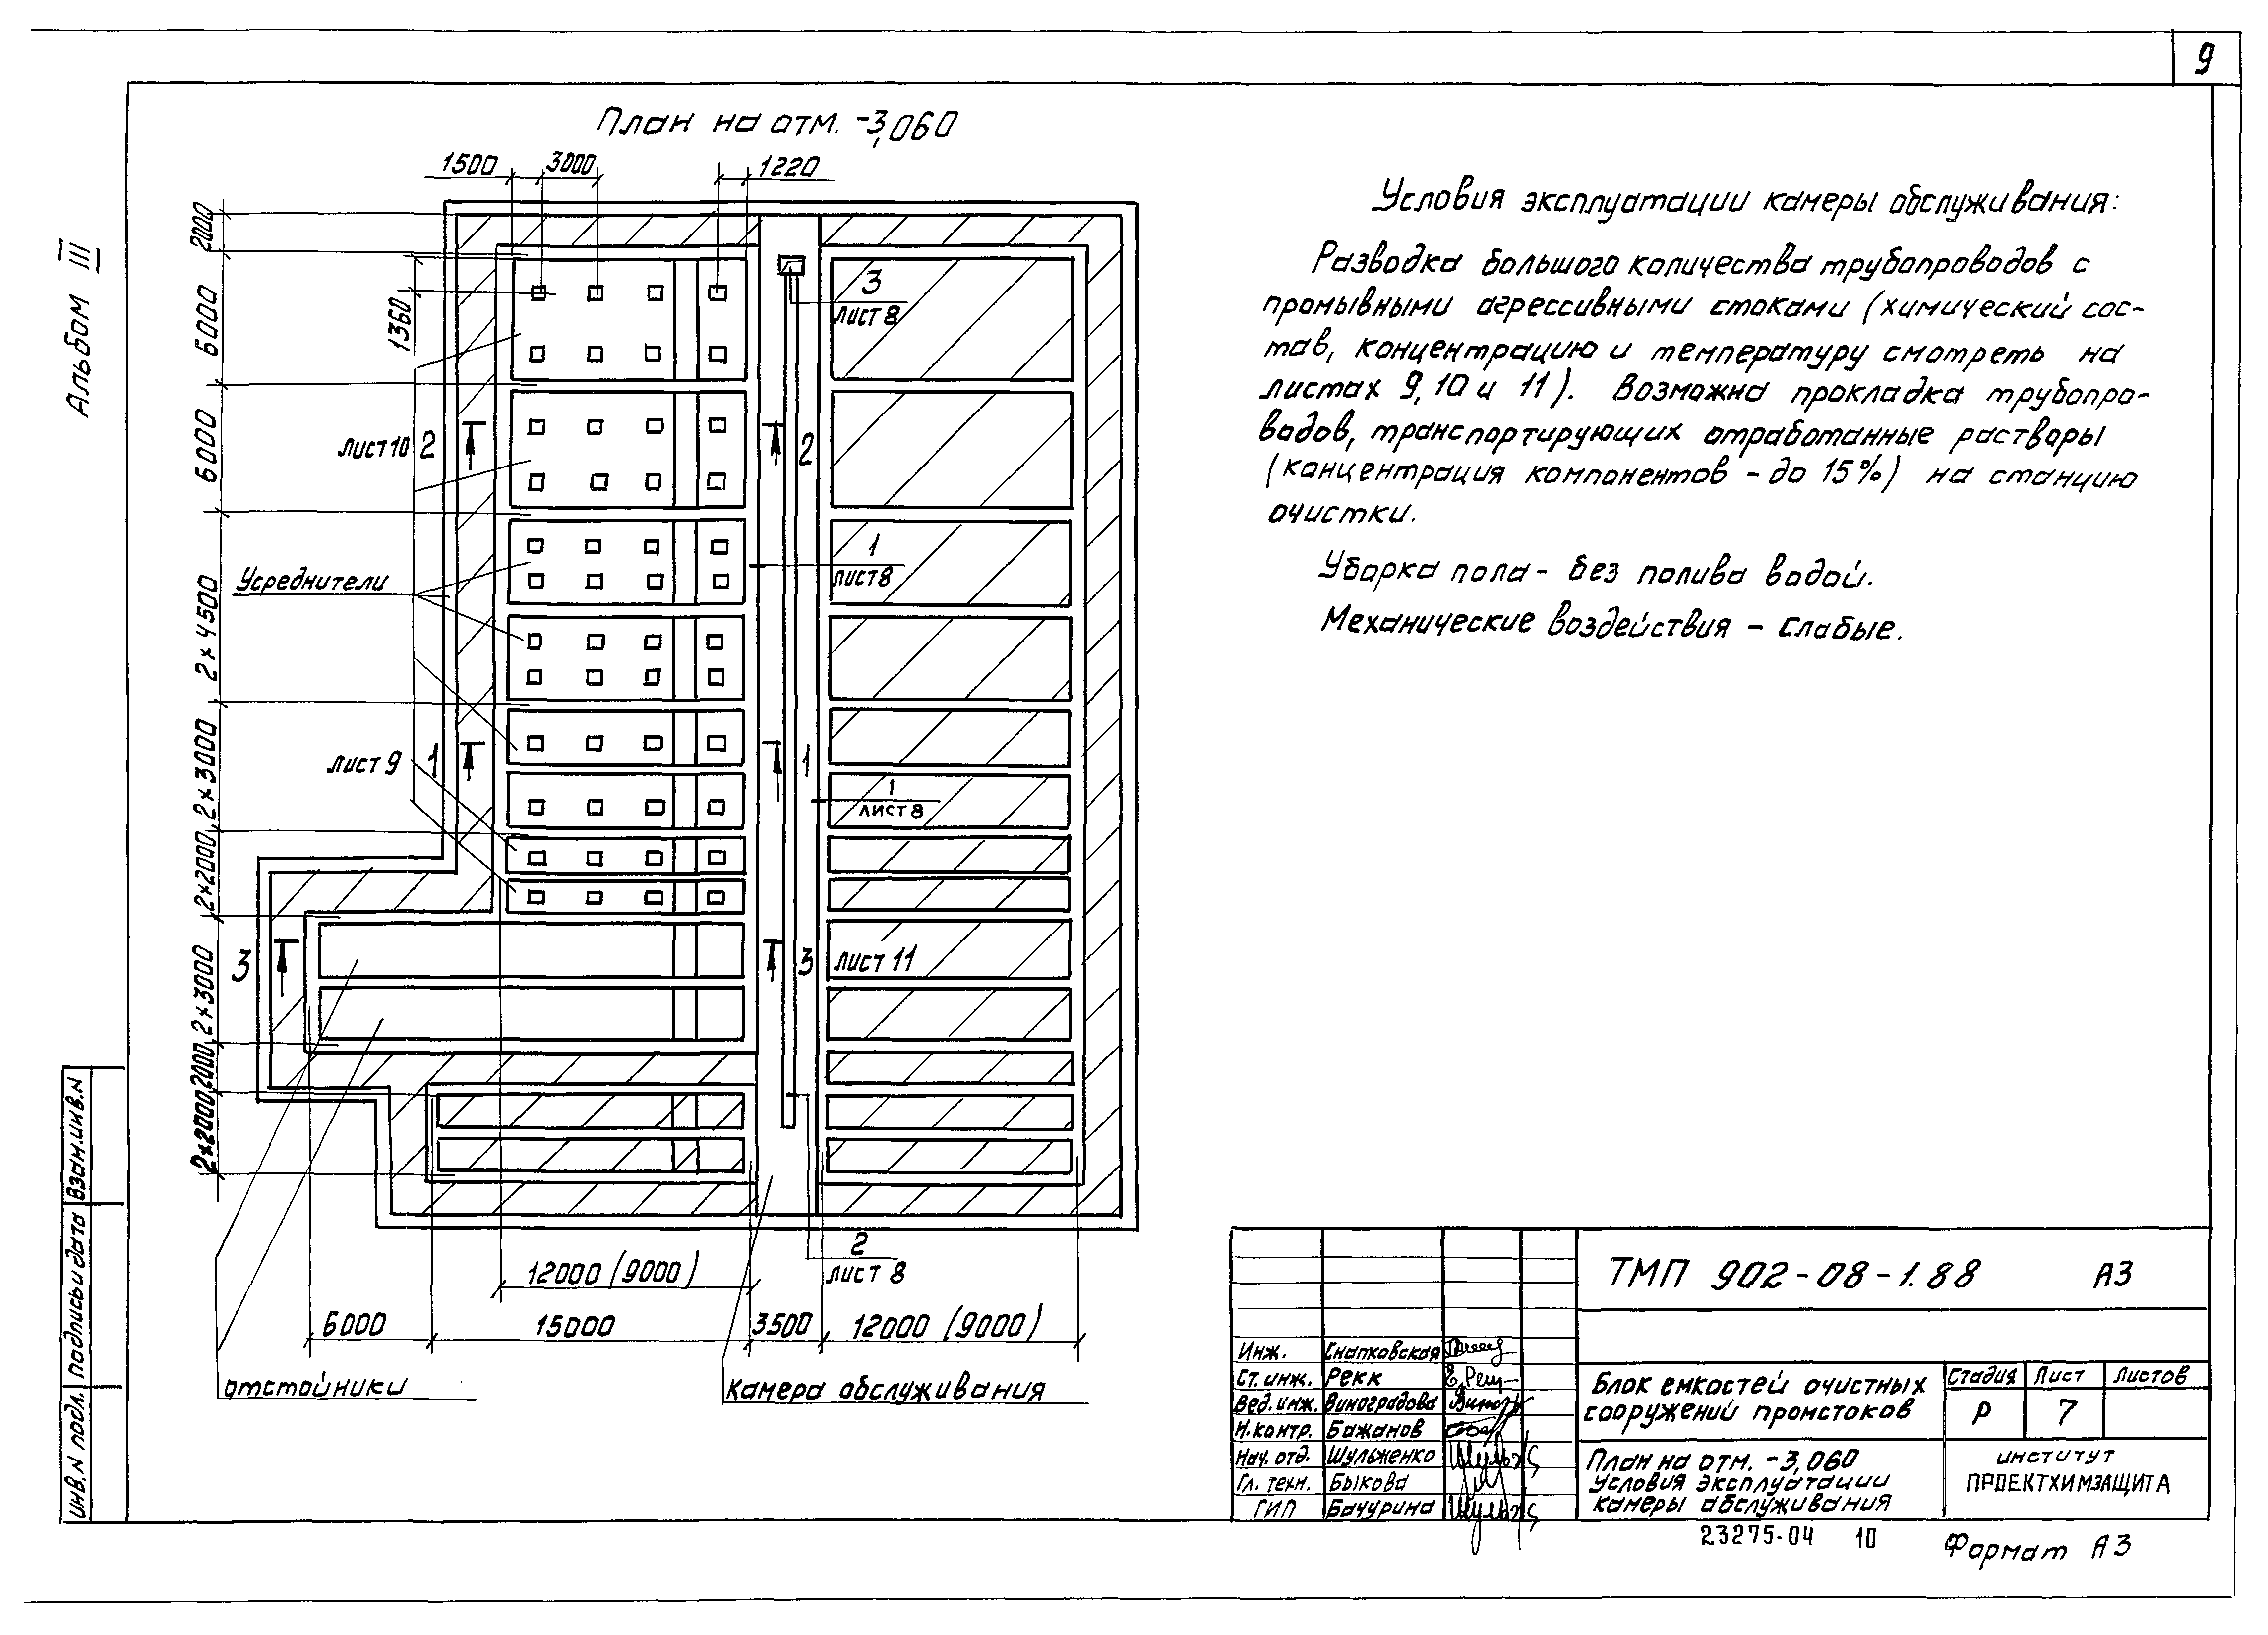 9
Альбом III
План на отм. -3,060
1500
3000
1220
2000
6000
1360
6000
2×4500
2×3000
2×2000
2×3000
2000
2×2000
3
лист 8
лист 10
2
2
1
лист 8
Усреднители
лист 9
1
1
1
лист 8
3
3
лист 11
2
лист 8
12000 (9000)
6000
15000
3500
12000 (9000)
отстойники
Камера обслуживания
Условия эксплуатации камеры обслуживания:
Разводка большого количества трубопроводов с
промывными агрессивными стоками (химический сос-
тав, концентрацию и температуру смотреть на
листах 9, 10 и 11). Возможна прокладка трубопро-
водов, транспортирующих отработанные растворы
(концентрация компонентов - до 15%) на станцию
очистки.
Уборка пола - без полива водой.
Механические воздействия - слабые.
Инв.N подл.
Подпись и дата
Взам.инв.N
ТМП 902-08-1.88 А3
Инж. Снапковская
Ст. инж. Рекк
Вед. инж. Виноградова
Н. контр. Бажанов
Нач. отд. Шульженко
Гл. техн. Быкова
ГИП Бачурина
Блок емкостей очистных
сооружений промстоков
Стадия Лист Листов
Р 7
План на отм. -3,060
Условия эксплуатации
камеры обслуживания
институт
ПРОЕКТХИМЗАЩИТА
23275-04 10
Формат А3